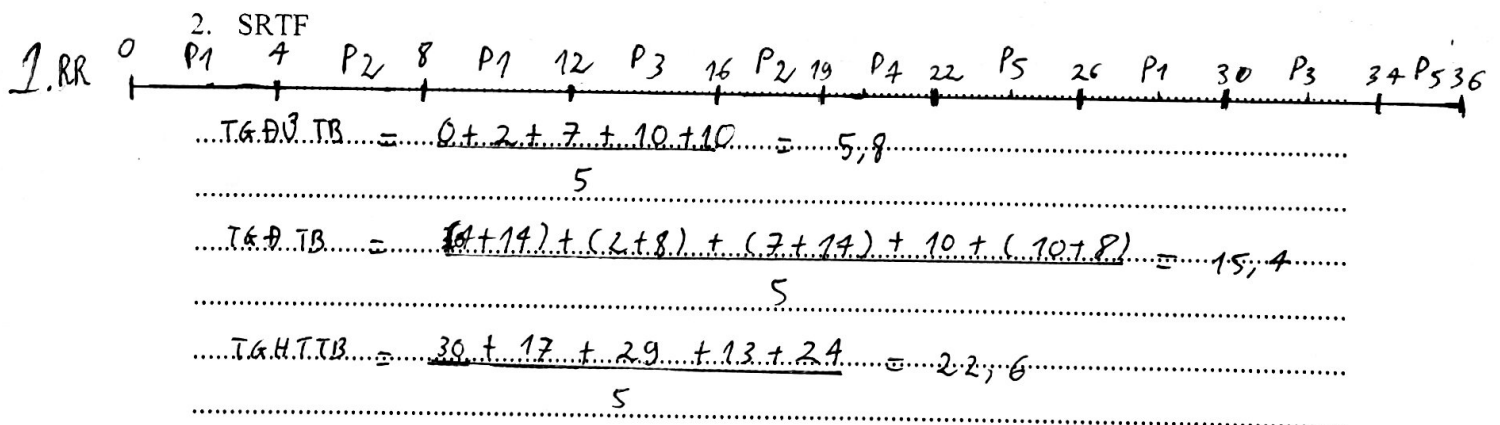 2. SRTF
1. RR 0 P1 4 P2 8 P1 12 P3 16 P2 19 P4 22 P5 26 P1 30 P3 34 P5 36
TGĐƯ TB = 0 + 2 + 7 + 10 + 10 = 5,8
5
TGĐ TB = (4+14) + (2+8) + (7+14) + 10 + (10+8) = 15,4
5
TGHTTB = 30 + 17 + 29 + 13 + 24 = 22,6
5